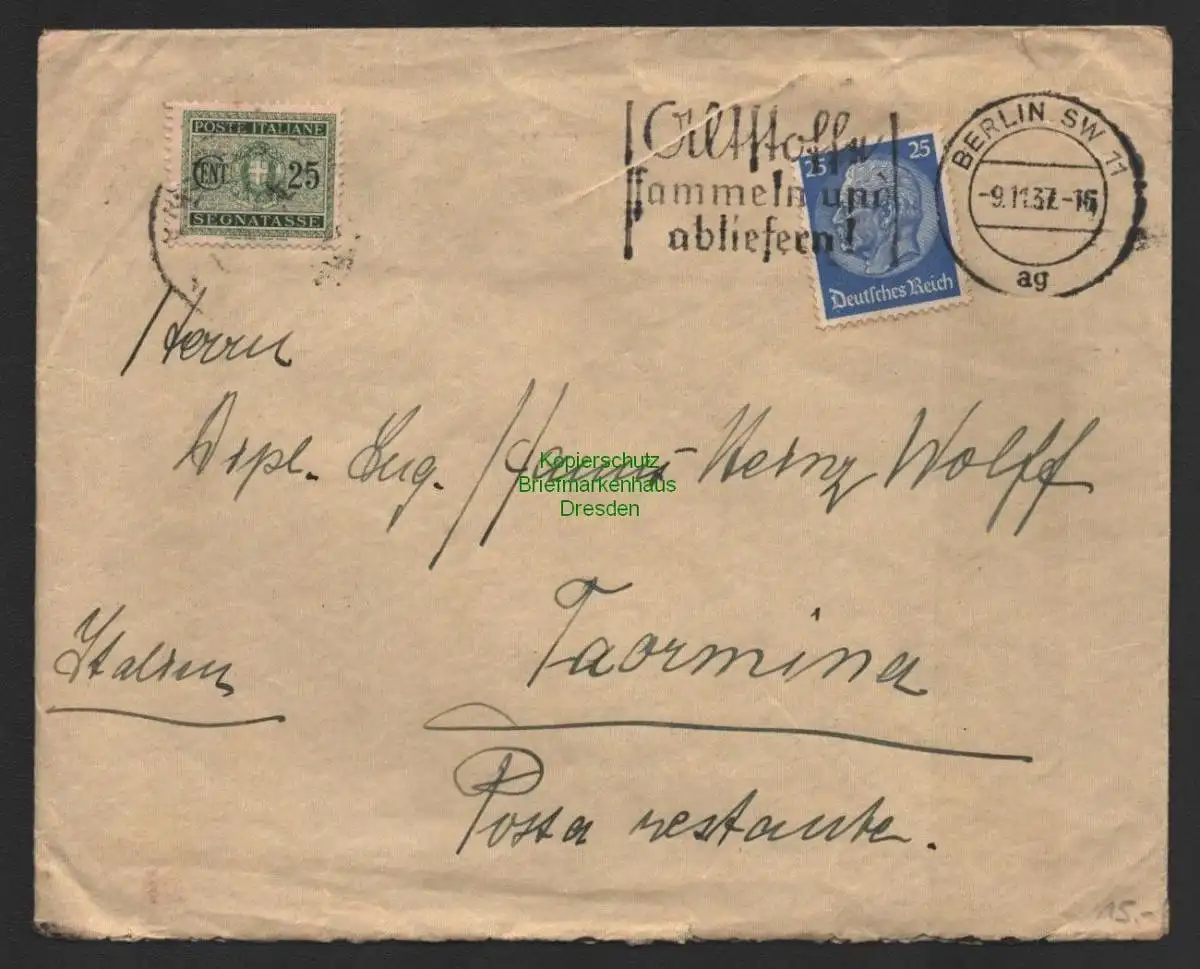 POSTE ITALIANE
CENT 25
SEGNATASSE
Altstoffe
sammeln und
abliefern!
25 25
Deutsches Reich
BERLIN SW 11
-9.11.37.-16
ag
Herrn
Dipl. Ing. Hanns-Heinz Wolff
Kopierschutz
Briefmarkenhaus
Dresden
Taormina
Italien
Posta restante.
15.-